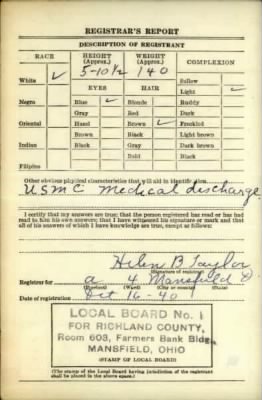 REGISTRAR'S REPORT
DESCRIPTION OF REGISTRANT
RACE HEIGHT (Approx.) WEIGHT (Approx.) COMPLEXION
5-10 1/2 140
White ✓ Sallow
EYES HAIR Light ✓
Negro Blue ✓ Blonde Ruddy
Gray Red Dark
Oriental Hazel Brown ✓ Freckled
Brown Black Light brown
Indian Black Gray Dark brown
Bald Black
Filipino
Other obvious physical characteristics that will aid in identification
U.S.M.C Medical discharge
I certify that my answers are true; that the person registered has read or has had
read to him his own answers; that I have witnessed his signature or mark and that
all of his answers of which I have knowledge are true, except as follows:
Helen B Taylor
(Signature of registrar)
Registrar for a 4 Mansfield O
(Precinct) (Ward) (City or county) (State)
Date of registration Oct 16-40
LOCAL BOARD No. 1
FOR RICHLAND COUNTY,
Room 603, Farmers Bank Bldg.
MANSFIELD, OHIO
(STAMP OF LOCAL BOARD)
(The stamp of the Local Board having jurisdiction of the registrant
shall be placed in the above space.)